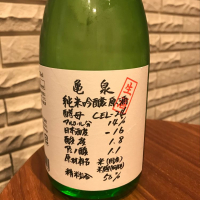 亀泉
生
純米吟醸原酒
酵母 CEL-24
アルコール分 14%
日本酒度 -16
酸度 1.8
アミノ酸 1.1
原材料名 米(国産)
米麹(国産米)
精米歩合 50%